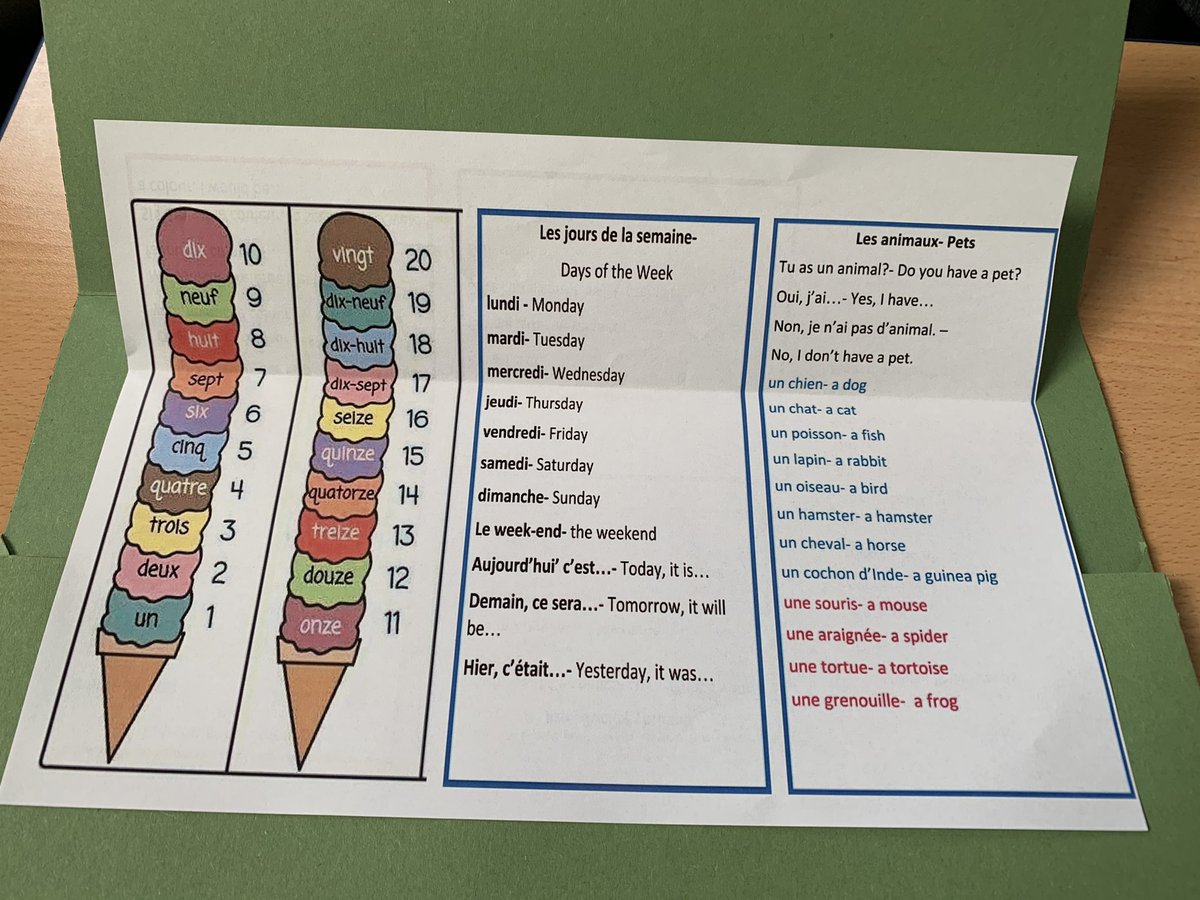 dix 10
neuf 9
huit 8
sept 7
six 6
cinq 5
quatre 4
trois 3
deux 2
un 1
vingt 20
dix-neuf 19
dix-huit 18
dix-sept 17
seize 16
quinze 15
quatorze 14
treize 13
douze 12
onze 11
Les jours de la semaine-
Days of the Week
lundi - Monday
mardi- Tuesday
mercredi- Wednesday
jeudi- Thursday
vendredi- Friday
samedi- Saturday
dimanche- Sunday
Le week-end- the weekend
Aujourd’hui’ c’est...- Today, it is...
Demain, ce sera...- Tomorrow, it will
be...
Hier, c’était...- Yesterday, it was...
Les animaux- Pets
Tu as un animal?- Do you have a pet?
Oui, j’ai...- Yes, I have...
Non, je n’ai pas d’animal. –
No, I don’t have a pet.
un chien- a dog
un chat- a cat
un poisson- a fish
un lapin- a rabbit
un oiseau- a bird
un hamster- a hamster
un cheval- a horse
un cochon d’Inde- a guinea pig
une souris- a mouse
une araignée- a spider
une tortue- a tortoise
une grenouille- a frog